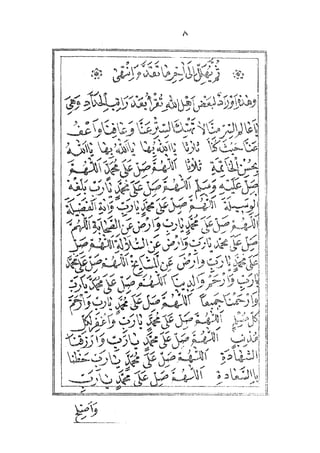 ٨
ثم يهلل إلى آخر ما تقدم وانتهى
وهذه أوراد لبعض أهل الله تقرأ بعد راتب الحداد وهي
يا عالم السر منا لا تهتك الستر عنا وعافنا واعف
عنا حيث كنا ثلاثا يا الله بها يا الله بها يا الله
بحسن الخاتمة ثلاثا اللهم صل على محمد اللهم
صل عليه وسلم اللهم صل على محمد يا رب بلغه
الوسيلة اللهم صل على محمد يا رب وآته الفضيلة
اللهم صل على محمد يا رب وارض عن الصحابة اللهم
صل على محمد يا رب وارض عن السلالة اللهم صل
على محمد يا رب وارض عن المشايخ اللهم صل على محمد
يا رب وارحم والدينا اللهم صل على محمد يا رب
وارحمنا جميعا اللهم صل على محمد يا رب وارحم
كل مسلم اللهم صل على محمد يا رب واغفر لكل
مذنب اللهم صل على محمد يا رب وارزقنا
الشهادة اللهم صل على محمد يا رب حفنا
بالسعادة اللهم صل على محمد يا رب
وأصلح